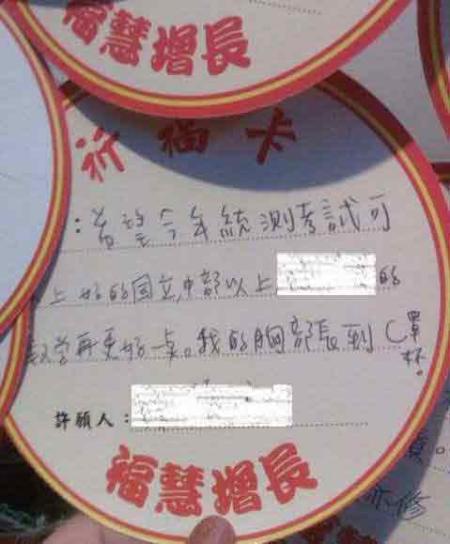 福慧增長
祈福卡
：希望今年統測考試可
上好的国立中部以上 的
數学再更好一点。我的胸部長到C罩杯。
許願人：
福慧增長
亦修